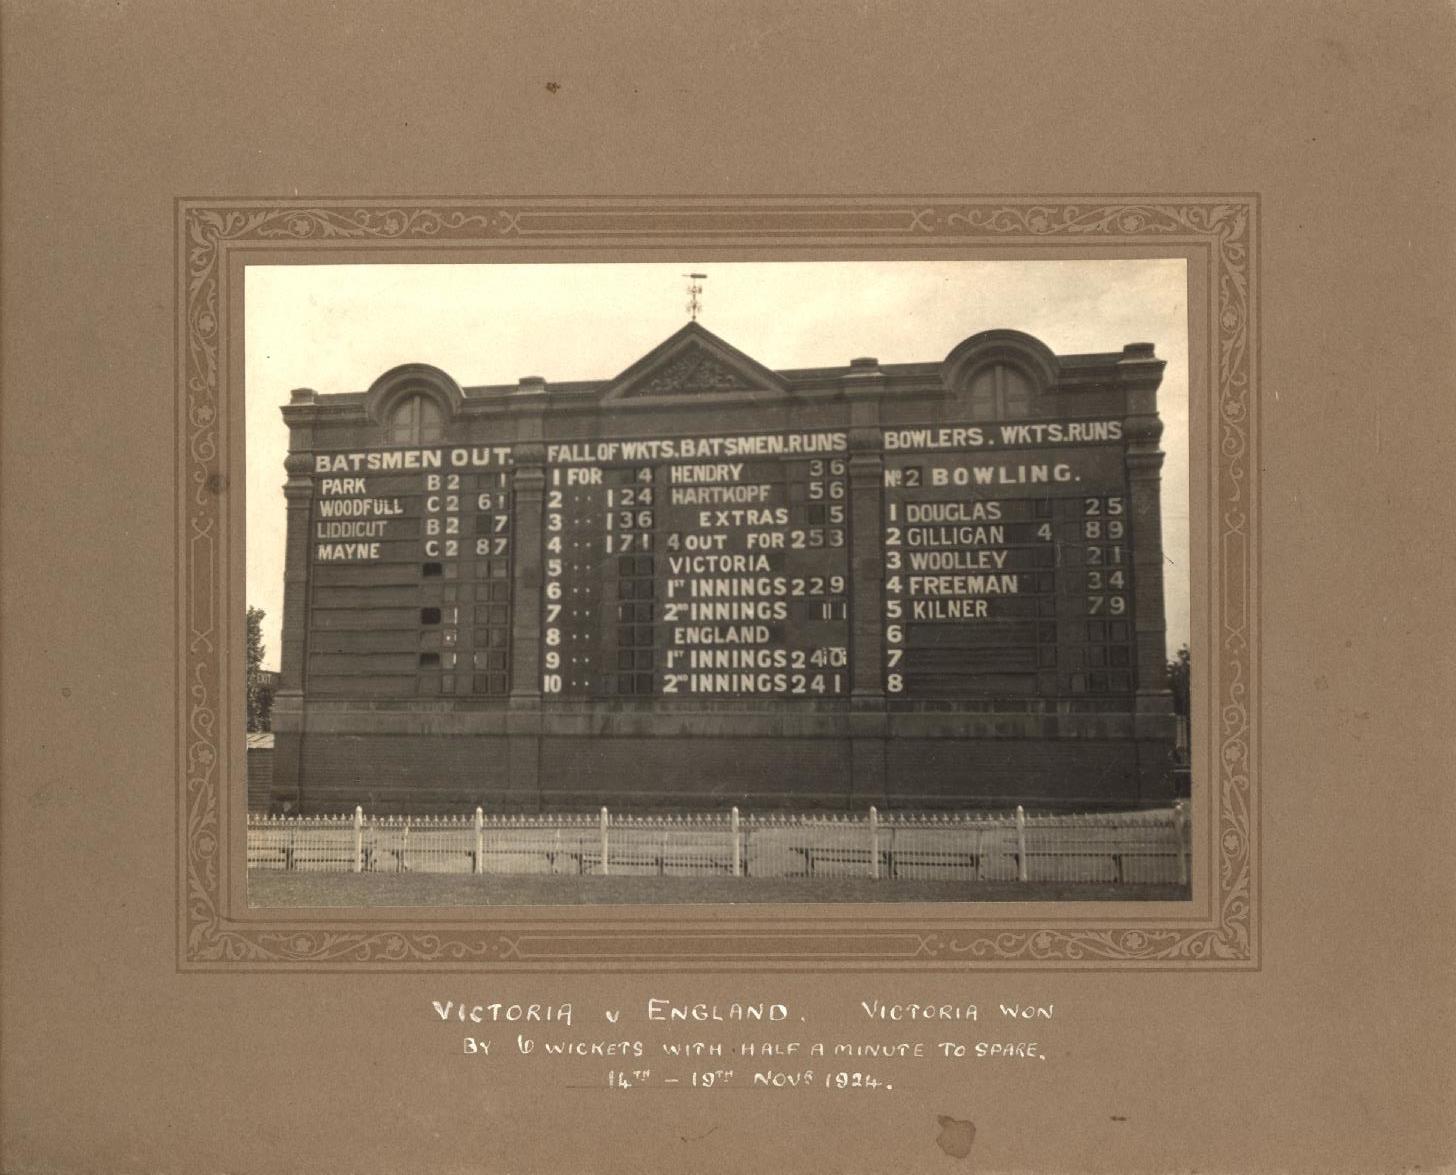 BATSMEN OUT.
PARK B2 1
WOODFULL C2 61
LIDDICUT B2 7
MAYNE C2 87
FALL OF WKTS. BATSMEN. RUNS
1 FOR 4 HENDRY 36
2 ·· 124 HARTKOPF 56
3 ·· 136 EXTRAS 5
4 ·· 171 4 OUT FOR 253
5 ·· VICTORIA
6 ·· 1ST INNINGS 229
7 ·· 2ND INNINGS
8 ·· ENGLAND
9 ·· 1ST INNINGS 240
10 ·· 2ND INNINGS 241
BOWLERS. WKTS. RUNS
No 2 BOWLING.
1 DOUGLAS 25
2 GILLIGAN 4 89
3 WOOLLEY 21
4 FREEMAN 34
5 KILNER 79
6
7
8
EXIT
VICTORIA v ENGLAND. VICTORIA WON
BY 6 WICKETS WITH HALF A MINUTE TO SPARE.
14TH – 19TH NOVR 1924.